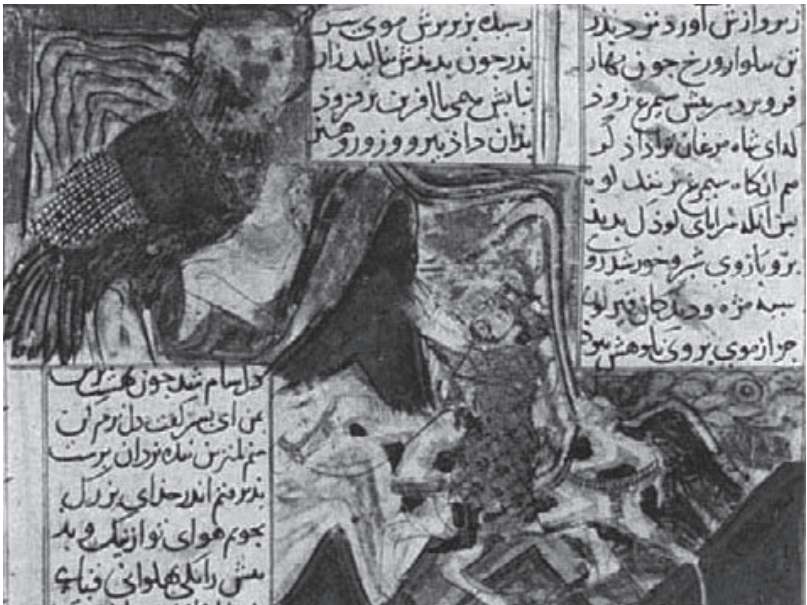 زپروازش آورد نزد پدر
تن پیلوار و رخ چون بهار
فرو برد سر پیش سیمرغ زود
که ای شاه مرغان ترا داذ گر
هم انگاه سیمرغ بر شد
پس انگه سراپای کوذک بدید
برو بازوی شیر و خورشید رو
سیه مژه و دیدگان قیر گون
جز از موی بر وی نکوهش نبود
رسیده بزیر برش موی سر
پدر چون بدیدش بنالید زار
نیایش همی بافرین بر فزود
بدان داذ نیرو و زور و هنر
دل سام شد چون بهشت برین
بمن ای پسر گفت دل نرم کن
منم کمترین بنده یزدان پرست
پذیرفتم اندر خدای بزرگ
بجویم هوای تو از نیک و بد
تنش را یکی پهلوانی قبای